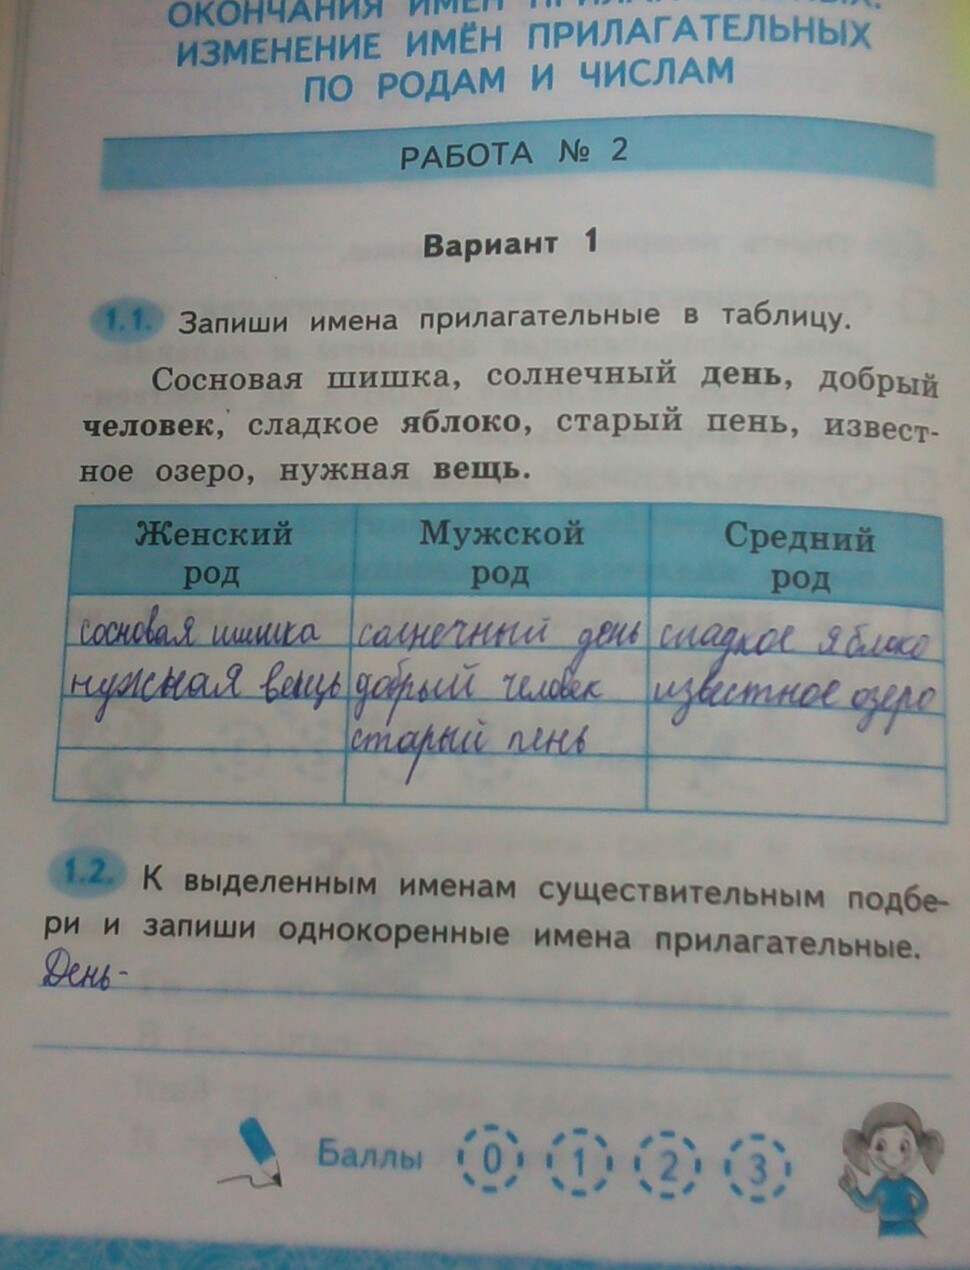 ОКОНЧАНИЯ ИМЁН
ИЗМЕНЕНИЕ ИМЁН ПРИЛАГАТЕЛЬНЫХ
ПО РОДАМ И ЧИСЛАМ
РАБОТА № 2
Вариант 1
1.1. Запиши имена прилагательные в таблицу.
Сосновая шишка, солнечный день, добрый
человек, сладкое яблоко, старый пень, извест-
ное озеро, нужная вещь.
Женский род Мужской род Средний род
сосновая шишка солнечный день сладкое яблоко
нужная вещь добрый человек известное озеро
старый пень
1.2. К выделенным именам существительным подбе-
ри и запиши однокоренные имена прилагательные.
День -
Баллы 0 1 2 3